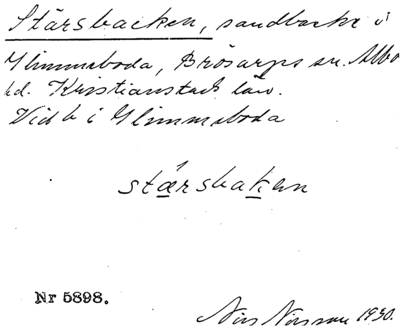 Stärsbacken, sandbacke i
Glimmeboda, Brösarps sn. Albo
hd. Kristianstads län.
Vid b i Glimmeboda
stǽrsbakan
Nr 5898.
Nils Nilsson 1930.